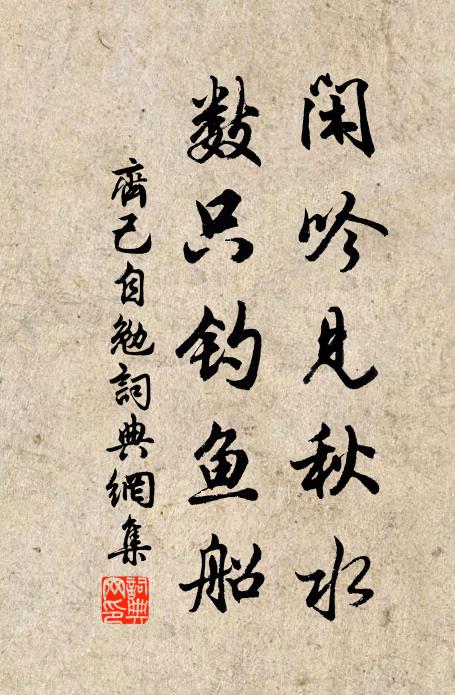 闲吟见秋水
数只钓鱼船
齊己自勉詞典網集
詞典網印